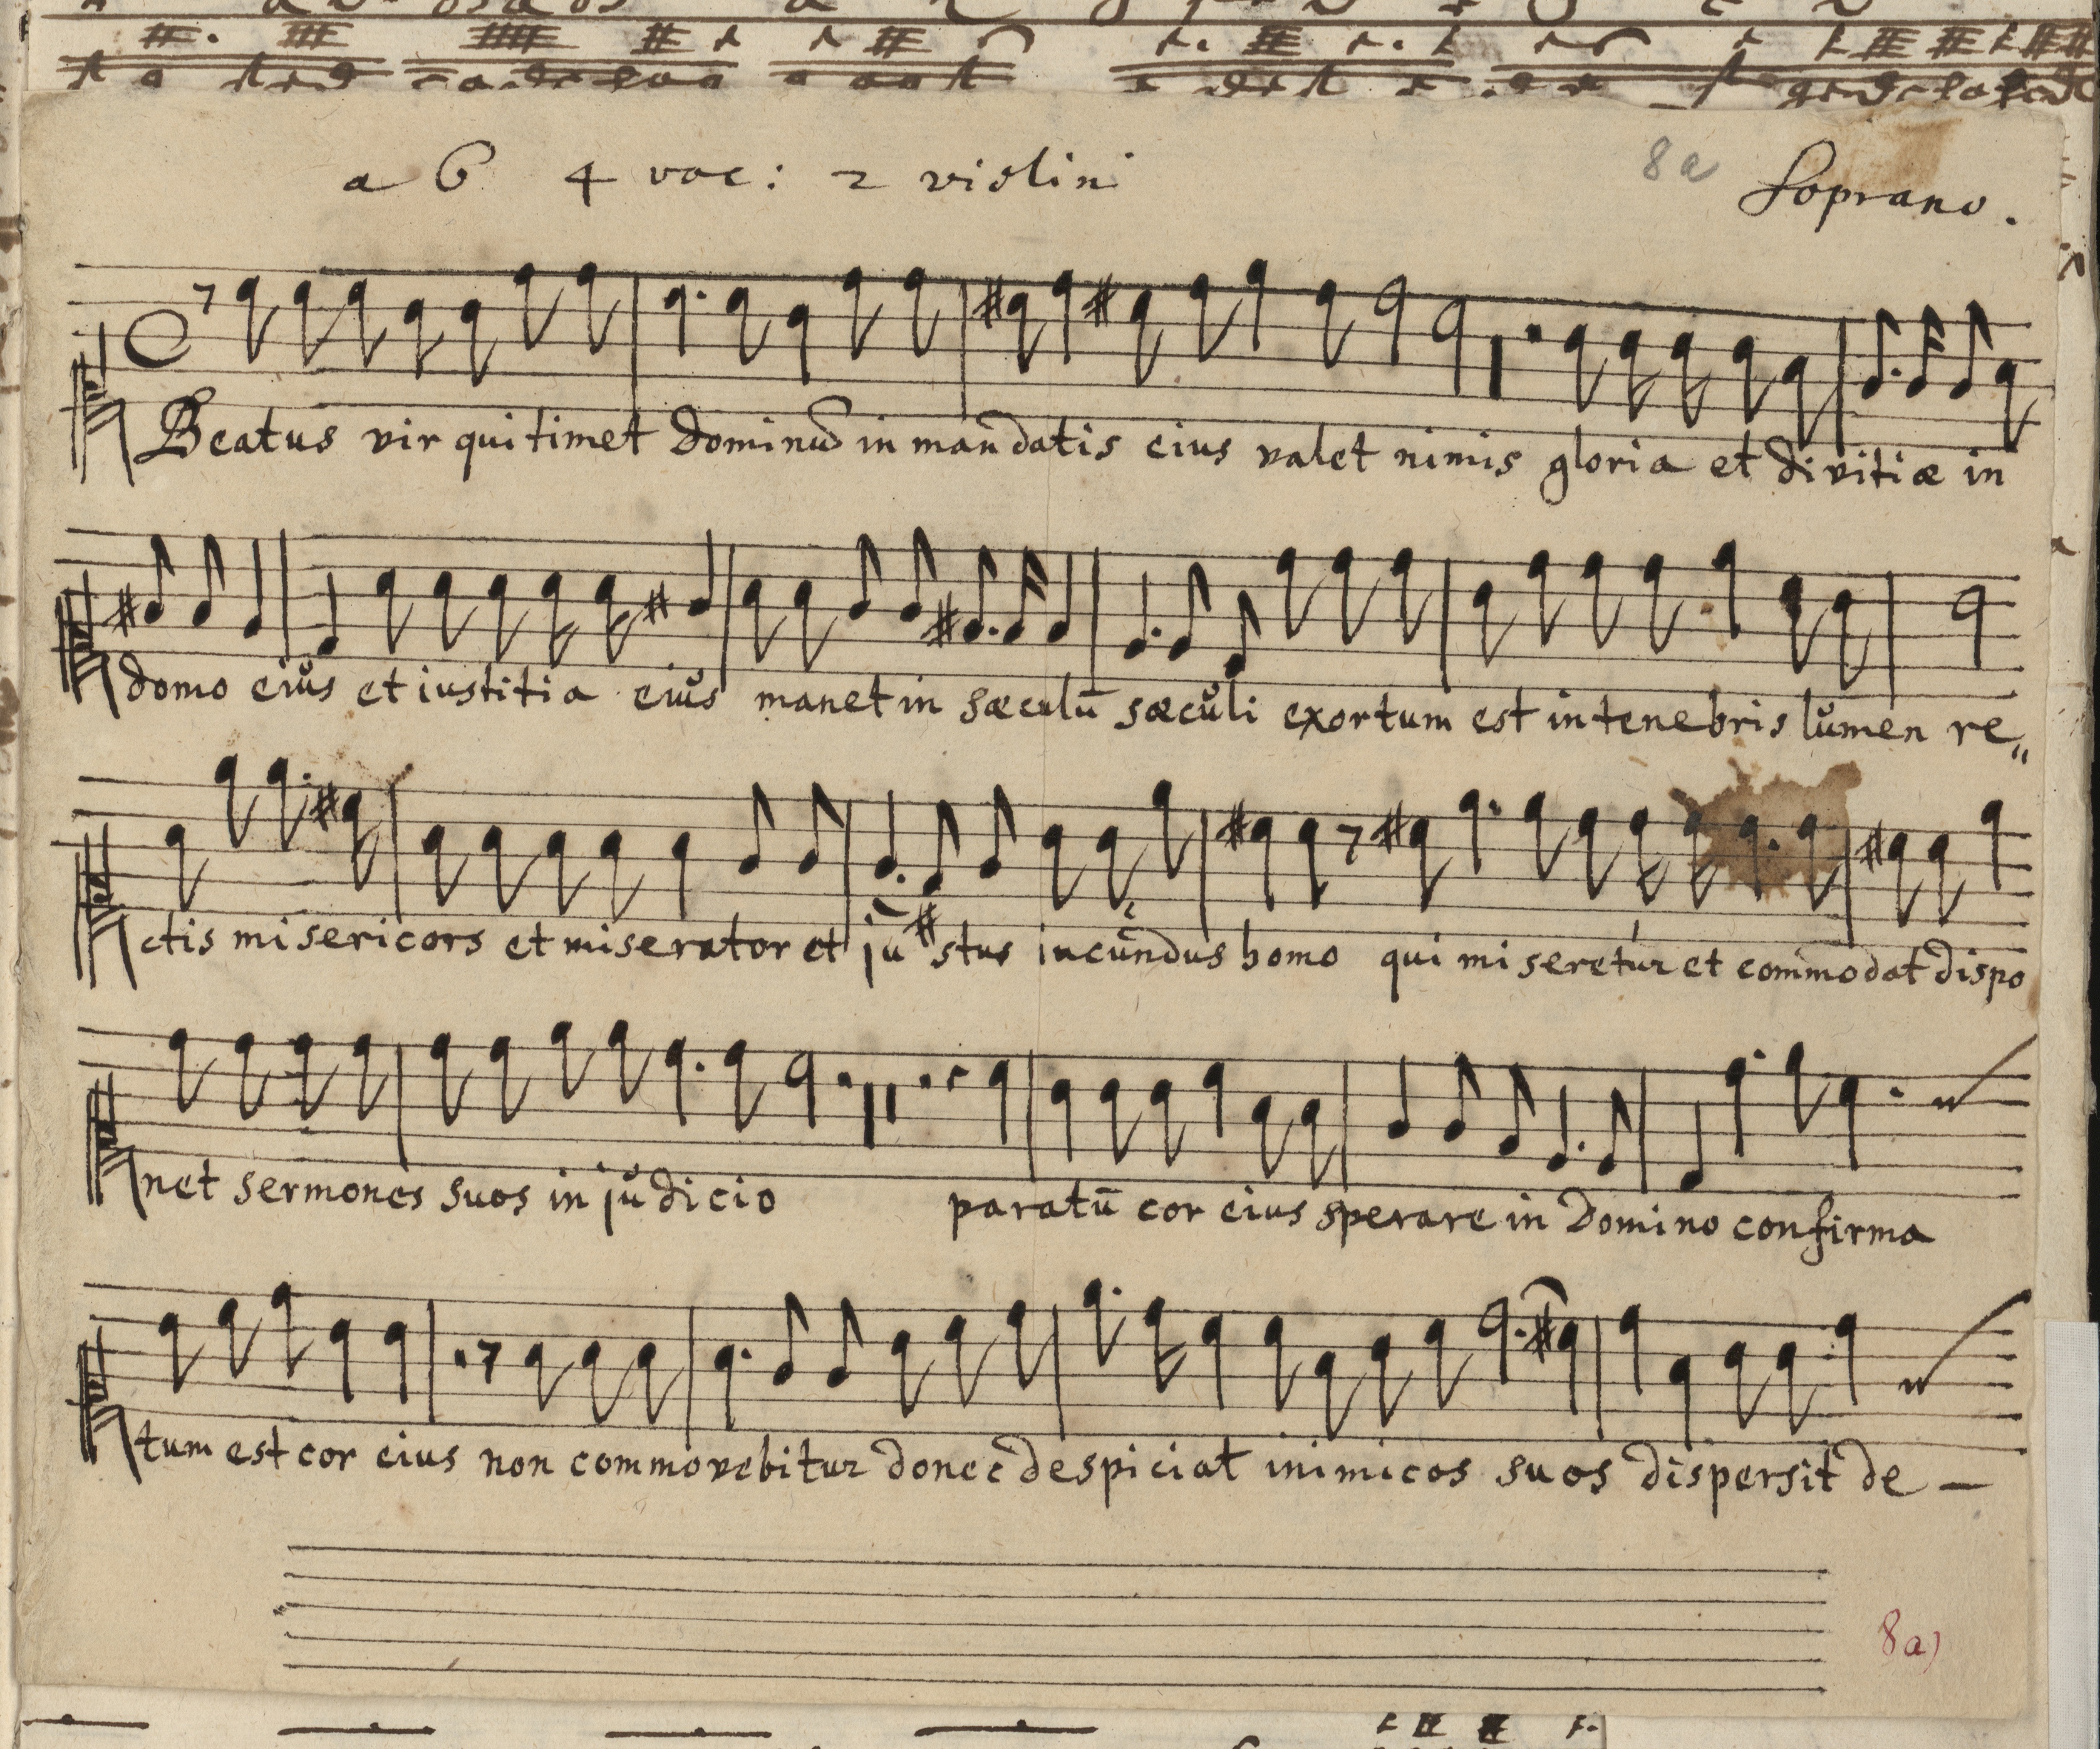 a 6 4 voc: 2 violini
8a Soprano.
Beatus vir qui timet Dominū in man̄datis eius valet nimis gloria et divitiæ in
domo eiŭs et iustitia eiŭs manet in sæculū sæcŭli exortum est in tenebris lŭmen re„
ctis misericors et miserator et jŭ stus iucŭndus homo qui miseretur et com̄modat dispo
net sermones suos in jŭdicio paratū cor eius sperare in Domino confirma
tum est cor eius non commovebitur donec despiciat inimicos suos dispersit de –
8a)